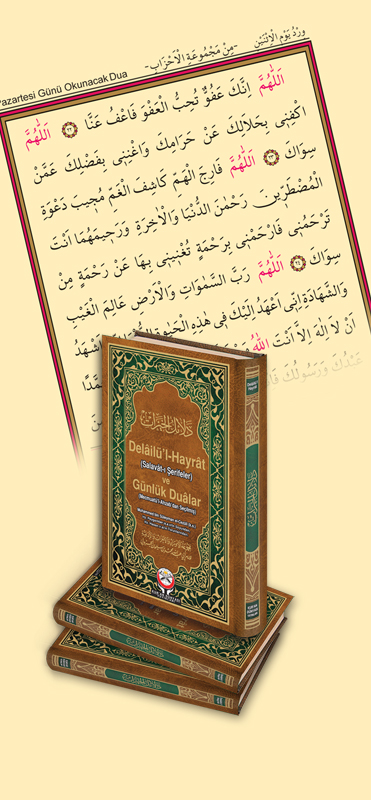 وِرْدُ يَوْمِ الْاِثْنَيْنِ
-مِنْ مَجْمُوعَةِ الْاَحْزَابِ-
Pazartesi Günü Okunacak Dua
اَللّٰهُمَّ اِنَّكَ عَفُوٌّ تُحِبُّ الْعَفْوَ فَاعْفُ عَنَّا ٢٢ اَللّٰهُمَّ
اكْفِنِى بِحَلَالِكَ عَنْ حَرَامِكَ وَاغْنِنِى بِفَضْلِكَ عَمَّنْ
سِوَاكَ ٢٣ اَللّٰهُمَّ فَارِجَ الْهَمِّ كَاشِفَ الْغَمِّ مُجِيبَ دَعْوَةِ
الْمُضْطَرِّينَ رَحْمٰنَ الدُّنْيَا وَالْاٰخِرَةِ وَرَحِيمَهُمَا اَنْتَ
تَرْحَمُنِى فَارْحَمْنِى بِرَحْمَةٍ تُغْنِينِى بِهَا عَنْ رَحْمَةِ مِنْ
سِوَاكَ ٢٤ اَللّٰهُمَّ رَبَّ السَّمٰوَاتِ وَالْاَرْضِ عَالِمَ الْغَيْبِ
وَالشَّهَادَةِ اِنِّى اَعْهَدُ اِلَيْكَ فِى هٰذِهِ الْحَيٰوةِ
اَنْ لَا اِلٰهَ اِلَّا اَنْتَ اللّٰهُ
عَبْدُكَ وَرَسُولُكَ
دَلَائِلُ الْخَيْرَاتِ
Delâilü'l-Hayrât
(Salavât-ı Şerifeler)
ve
Günlük Duâlar
(Mecmuatü'l-Ahzab'dan Seçilmiş)